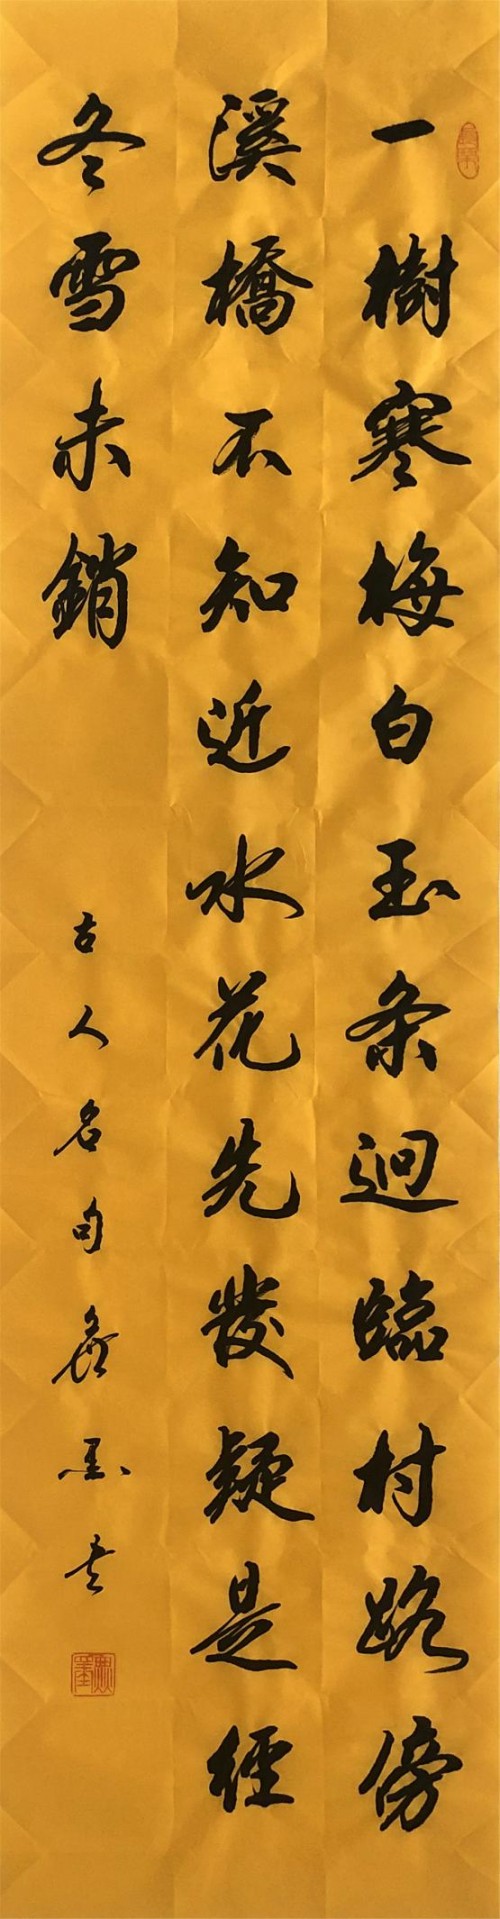 一樹寒梅白玉条迥臨村路傍
溪橋不知近水花先發疑是經
冬雪未銷
古人名句 墨书